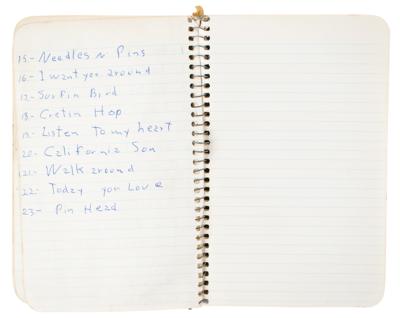 15- Needles n Pins
16- I want you around
17- Surfin Bird
18- Cretin Hop
19- Listen To my heart
20- California Son
21- Walk around
22- Today you Love
23- Pin Head